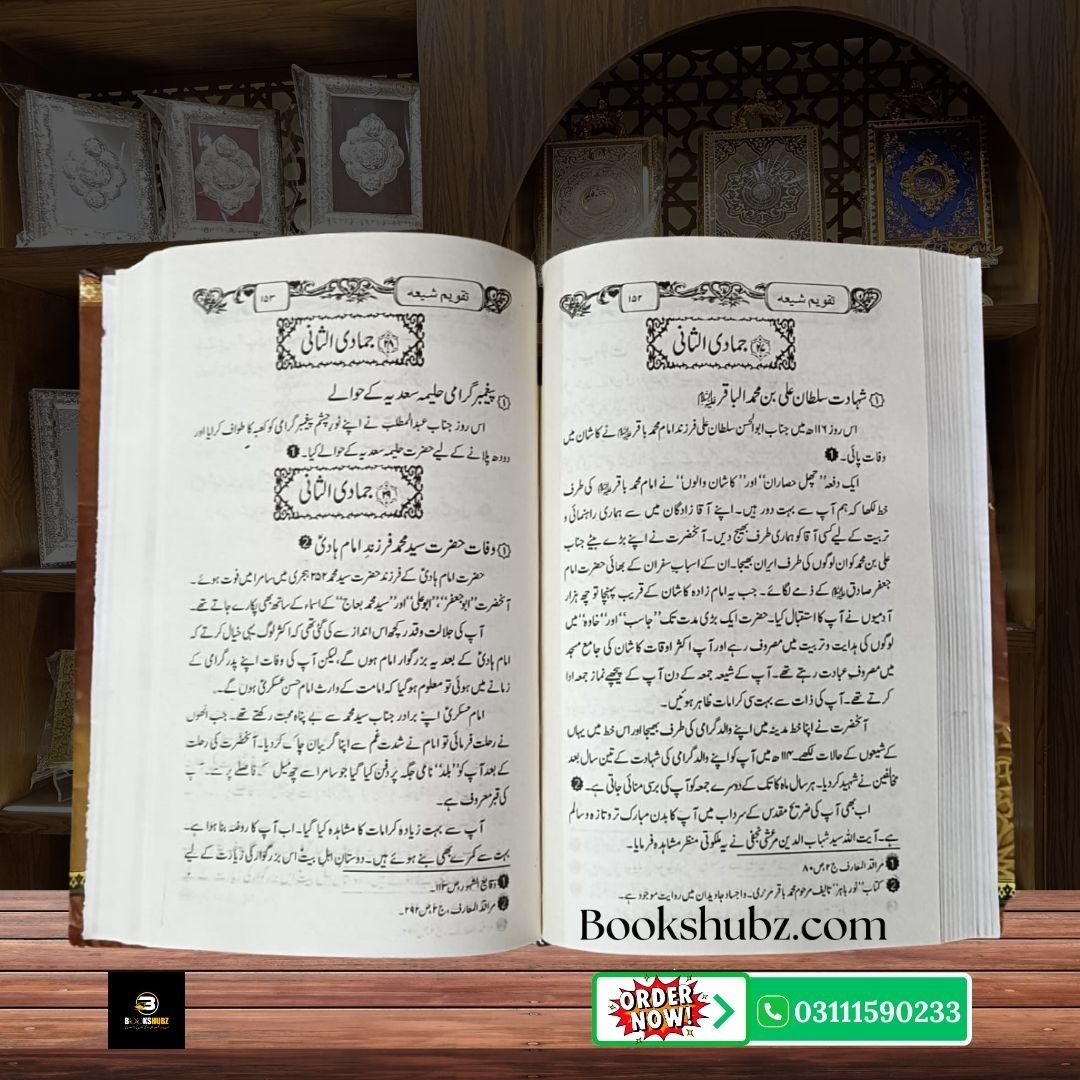 تقویم شیعه
۱۵۲
۲۷ جمادی الثانی
۱ شہادت سلطان علی بن محمد الباقر علیہ السلام
اس روز ۱۱۶ھ میں جناب ابوالحسن سلطان علی فرزند امام محمد باقر علیہ السلام نے کاشان میں
وفات پائی۔ 1
ایک دفعہ "چهل حصاران" اور "کاشان والوں" نے امام محمد باقر علیہ السلام کی طرف
خط لکھا کہ ہم آپ سے بہت دور ہیں۔ اپنے آقا زادگان میں سے ہماری راہنمائی و
تربیت کے لیے کسی آقا کو ہماری طرف بھیج دیں۔ آنحضرت نے اپنے بڑے بیٹے جناب
علی بن محمد کو ان لوگوں کی طرف ایران بھیجا۔ ان کے اسباب سفر ان کے بھائی حضرت امام
جعفر صادق علیہ السلام کے ذمے لگائے۔ جب یہ امام زادہ کاشان کے قریب پہنچا تو چھ ہزار
آدمیوں نے آپ کا استقبال کیا۔ حضرت ایک بڑی مدت تک "جاسب" اور "خاوہ" میں
لوگوں کی ہدایت و تربیت میں مصروف رہے اور آپ اکثر اوقات کاشان کی جامع مسجد
میں مصروف عبادت رہتے تھے۔ آپ کے شیعہ جمعہ کے دن آپ کے پیچھے نماز جمعہ ادا
کرتے تھے۔ آپ کی ذات سے بہت سی کرامات ظاہر ہوئیں۔
آنحضرت نے اپنا خط مدینہ میں اپنے والد گرامی کی طرف بھیجا اور اس خط میں یہاں
کے شیعوں کے حالات لکھے۔ ۱۱۴ھ میں آپ کو اپنے والد گرامی کی شہادت کے تین سال بعد
مخالفین نے شہید کر دیا۔ ہر سال ماہ کا تک کے دوسرے جمعہ کو آپ کی برسی منائی جاتی ہے۔ 2
اب بھی آپ کی ضریح مقدس کے سرداب میں آپ کا بدن مبارک تروتازہ و سالم
ہے۔ آیت اللہ سید شہاب الدین مرعشی نجفی نے یہ ملکوتی منظر مشاہدہ فرمایا۔
1 مراقد المعارف ج ۲، ص ۸۰
2 کتاب "نور باہر" تالیف مرحوم محمد باقر مرندی۔ و اجساد جاویدان میں روایت موجود ہے۔
تقویم شیعه
۱۵۳
۲۸ جمادی الثانی
۱ پیغمبر گرامی حلیمہ سعدیہ کے حوالے
اس روز جناب عبدالمطلب نے اپنے نور چشم پیغمبر گرامی کو کعبہ کا طواف کرایا اور
دودھ پلانے کے لیے حضرت حلیمہ سعدیہ کے حوالے کیا۔ 1
۲۹ جمادی الثانی
۱ وفات حضرت سید محمد فرزند امام ہادیؑ 2
حضرت امام ہادیؑ کے فرزند حضرت سید محمد ۲۵۲ ہجری میں سامرا میں فوت ہوئے۔
آنحضرت "ابوجعفر"، "ابوعلی" اور "سید محمد بعاج" کے اسماء کے ساتھ بھی پکارے جاتے تھے۔
آپ کی جلالت و قدر کچھ اس انداز سے کی گئی تھی کہ اکثر لوگ یہی خیال کرتے کہ
امام ہادیؑ کے بعد یہ بزرگوار امام ہوں گے، لیکن آپ کی وفات اپنے پدر گرامی کے
زمانے میں ہوئی تو معلوم ہو گیا کہ امامت کے وارث امام حسن عسکریؑ ہوں گے۔
امام عسکریؑ اپنے برادر جناب سید محمد سے بے پناہ محبت رکھتے تھے۔ جب انھوں
نے رحلت فرمائی تو امام نے شدت غم سے اپنا گریبان چاک کر دیا۔ آنحضرت کی رحلت
کے بعد آپ کو "بلد" نامی جگہ پر دفن کیا گیا جو سامرا سے چھ میل کے فاصلے پر ہے۔ آپ
کی قبر معروف ہے۔
آپ سے بہت زیادہ کرامات کا مشاہدہ کیا گیا۔ اب آپ کا روضہ بنا ہوا ہے۔
بہت سے کمرے بھی بنے ہوئے ہیں۔ دوستان اہل بیتؑ اس بزرگوار کی زیارت کے لیے
1 وقایع الشہور، ص ۱۱۴۔
2 مراقد المعارف، ج ۲، ص ۲۹۲۔
Bookshubz.com
BOOKSHUBZ
ORDER NOW!
03111590233